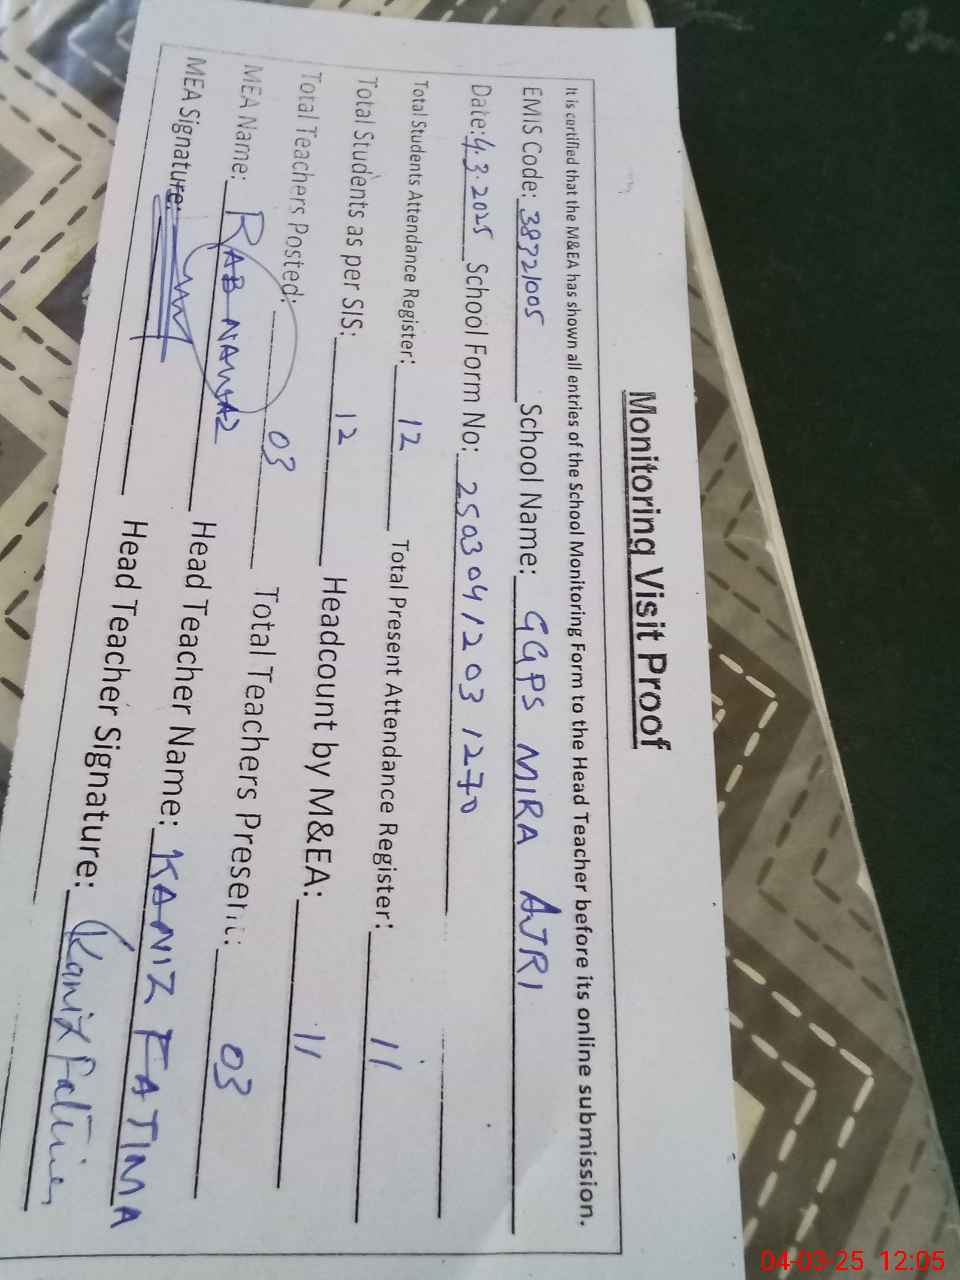 Monitoring Visit Proof
It is certified that the M&EA has shown all entries of the School Monitoring Form to the Head Teacher before its online submission.
EMIS Code: 38721005 School Name: GGPS MIRA AJRI
Date: 4.3.2025 School Form No: 25030412031270
Total Students Attendance Register: 12 Total Present Attendance Register: 11
Total Students as per SIS: 12 Headcount by M&EA: 11
Total Teachers Posted: 03 Total Teachers Present: 03
MEA Name: RAB NAWAZ Head Teacher Name: KANIZ FATIMA
MEA Signature: Head Teacher Signature: Kaniz Fatima
04-03-25 12:05